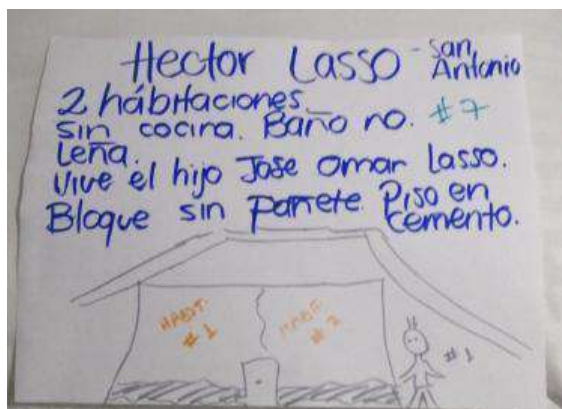 Hector Lasso - San Antonio
2 hábitaciones
sin cocina. Baño no. #7
Leña.
Vive el hijo Jose Omar Lasso.
Bloque sin pañete. Piso en cemento.
HABIT. #1
HABIT. #2
#1